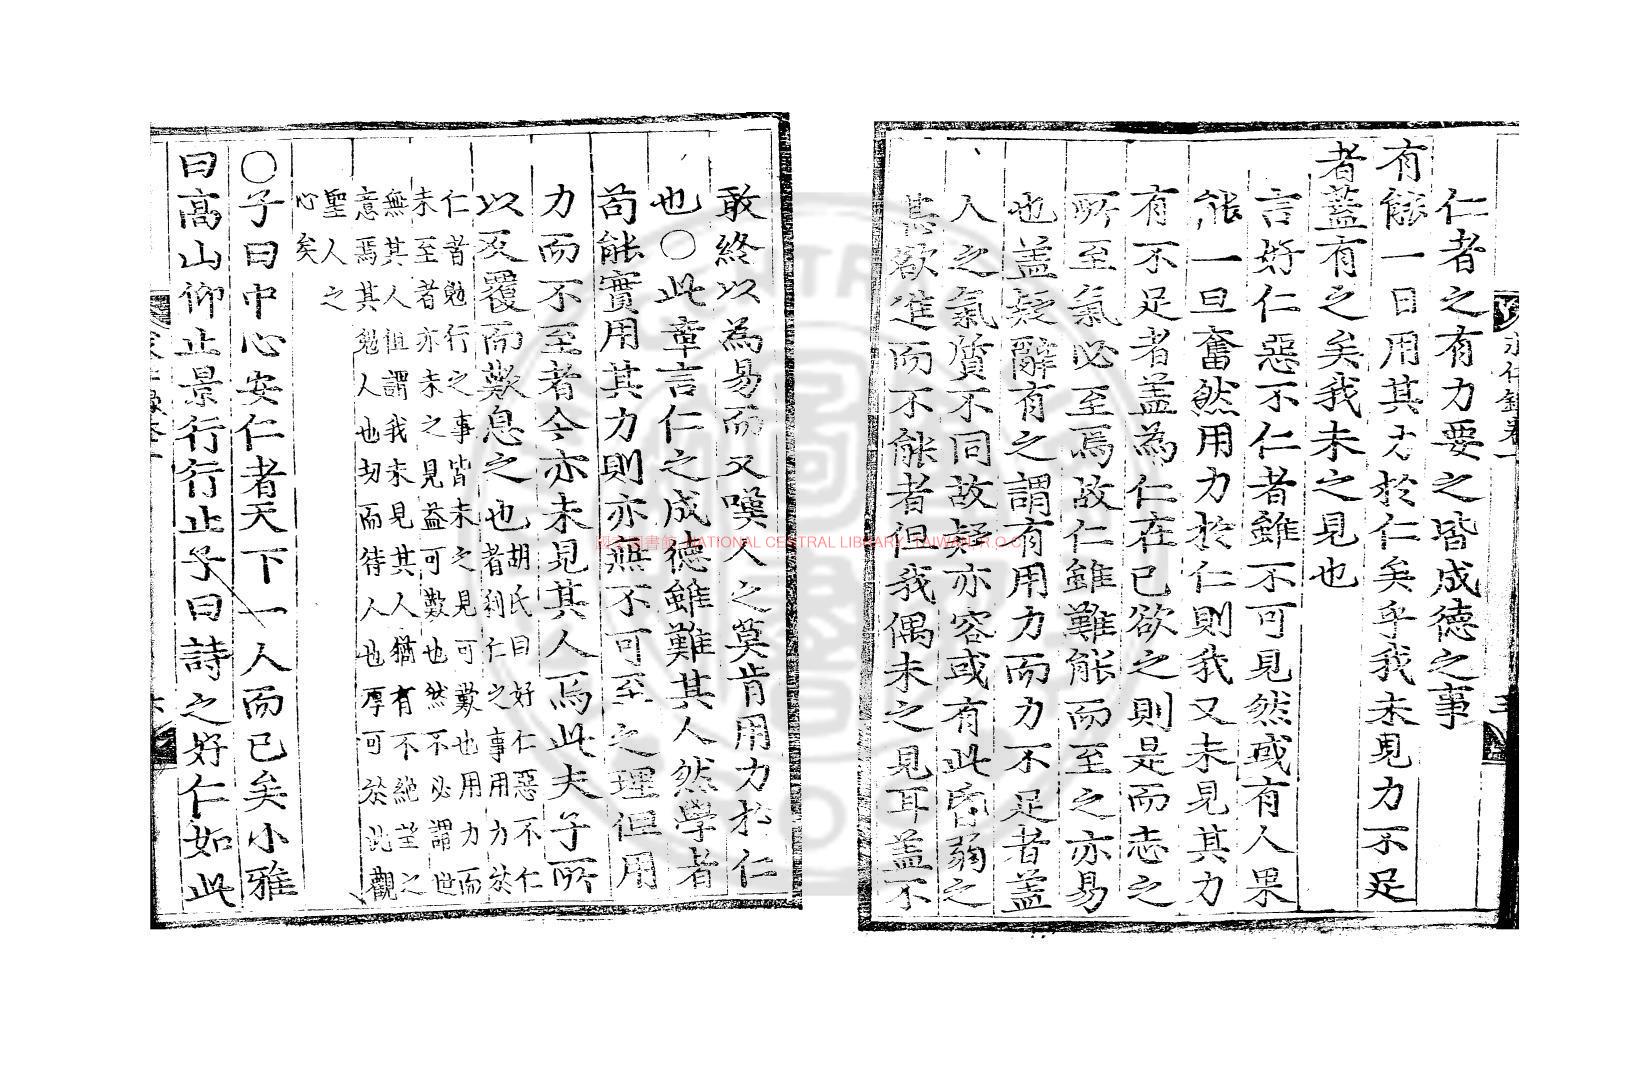 求仁錄卷一
仁者之有力要之皆成德之事
有能一日用其力於仁矣乎我未見力不足
者蓋有之矣我未之見也
言好仁惡不仁者雖不可見然或有人果
能一旦奮然用力於仁則我又未見其力
有不足者盖為仁在己欲之則是而志之
所至氣必至焉故仁雖難能而至之亦易
也盖疑辭有之謂有用力而力不足者盖
人之氣質不同故疑亦容或有此昏弱之
甚欲進而不能者但我偶未之見耳盖不
敢終以為易而又嘆人之莫肯用力於仁
也○此章言仁之成德雖難其人然學者
苟能實用其力則亦無不可至之理但用
力而不至者今亦未見其人焉此夫子所
以反覆而歎息之也
胡氏曰好仁惡不仁
者利仁之事用力於
仁者勉行之事皆未之見可歎也用力而
未至者亦未之見益可歎也然不必謂世
無其人但謂我未見其人猶有不絕望之
意焉其勉人也切而待人也厚可於此觀
聖人之
心矣
○子曰中心安仁者天下一人而已矣小雅
曰高山仰止景行行止子曰詩之好仁如此
NATIONAL CENTRAL LIBRARY, TAIWAN, R.O.C